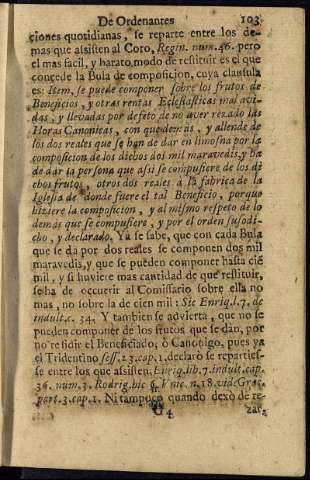 De Ordenantes 103
ciones quotidianas, se reparte entre los de-
mas que assisten al Coro, Regin. num. 46. pero
el mas facil, y barato modo de restituir es el que
concede la Bula de composicion, cuya clausula
es: Item, se puede componer sobre los frutos de
Beneficios, y otras rentas Eclesiasticas mal avi-
das, y llevadas por defeto de no aver rezado las
Horas Canonicas, con que demàs, y allende de
los dos reales que se han de dar en limosna por la
composicion de los dichos dos mil maravedis, y ha
de dar la persona que assi se compusiere de los di
chos frutos, otros dos reales à la fabrica de la
Iglesia de donde fuere el tal Beneficio, porque
hiziere la composicion, y al mismo respeto de lo
demàs que se compusiere, y por el orden susodi-
cho, y declarado. Ya se sabe, que con cada Bula
que se da por dos reales se componen dos mil
maravedis, y que se pueden componer hasta ciē
mil, y si huviere mas cantidad de que restituir,
se ha de occurrir al Comissario sobre ella no
mas, no sobre la de cien mil: Sic Enriq. l. 7. de
indult. c. 34. Y tambien se advierta, que no se
pueden componer de los frutos que se dan, por
no residir el Beneficiado, ò Canonigo, pues ya
el Tridentino sess. 23. cap. 1. declarò se reparties-
se entre los que assisten. Enriq. lib. 7. indult. cap.
36. num. 3. Rodrig. hic n. 18. vide Grac.
part. 3. cap. 1. Ni tampoco quando dexò de re-
G4 zar,